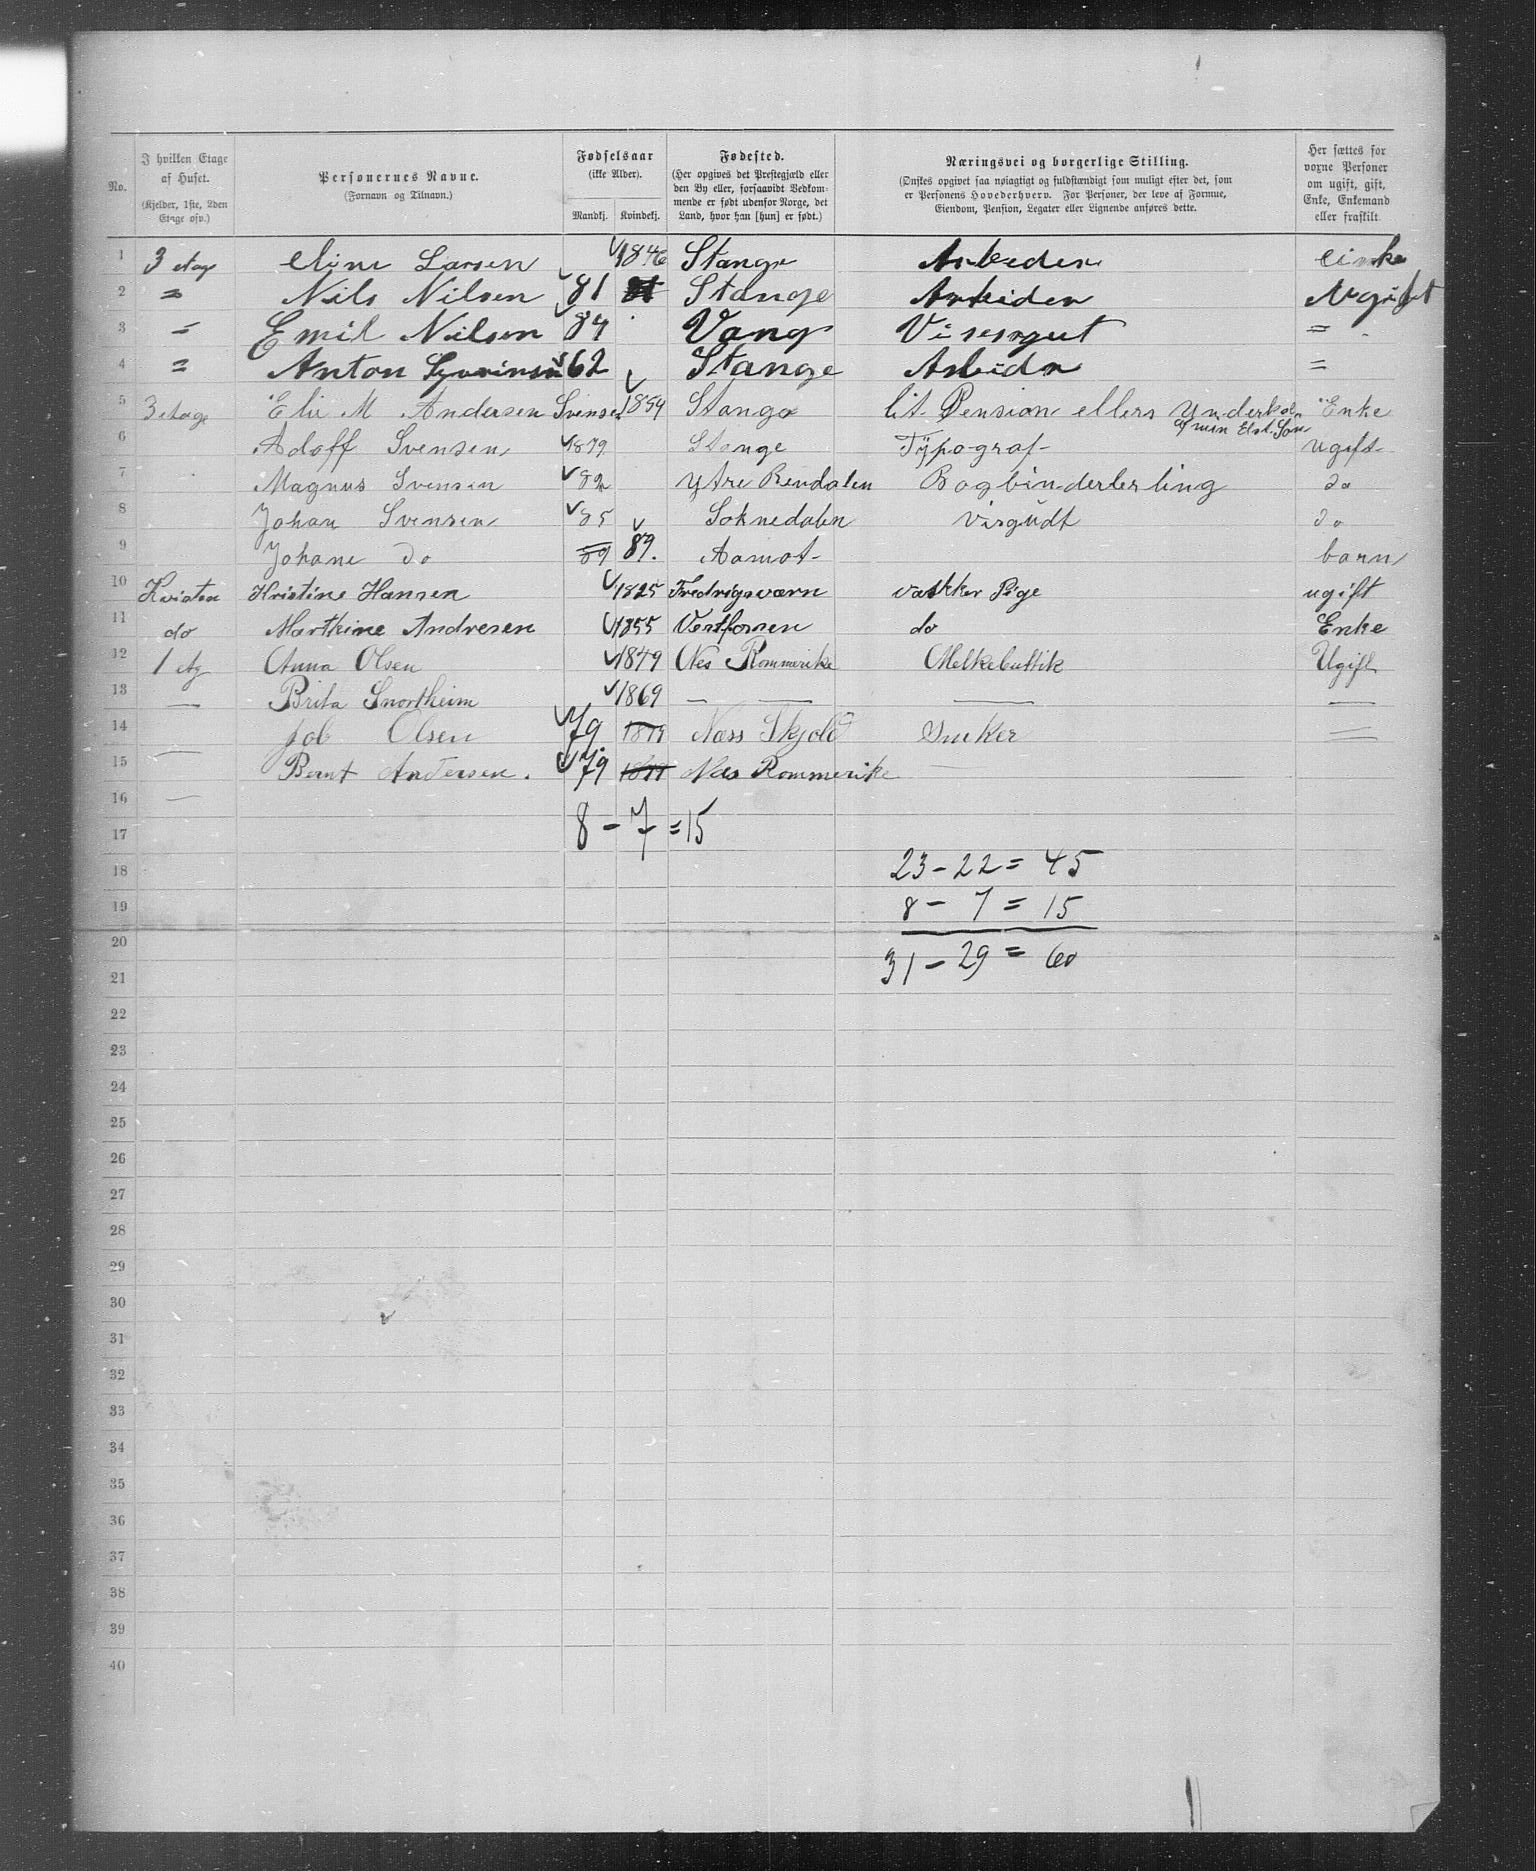 No. | I hvilken Etage af Huset. (Kjelder, 1ste, 2den Etage osv.) | Personernes Navne. (Fornavn og Tilnavn.) | Fødselsaar (ikke Alder). Mandkj. Kvindekj. | Fødested. (Her opgives det Prestegjæld eller den By eller, forsaavidt Vedkommende er født udenfor Norge, det Land, hvor han [hun] er født.) | Næringsvei og borgerlige Stilling. (Ønskes opgivet saa nøiagtigt og fuldstændigt som muligt efter det, som er Personens Hovederhverv. For Personer, der leve af Formue, Eiendom, Pension, Legater eller Lignende anføres dette. | Her sættes for voxne Personer om ugift, gift, Enke, Enkemand eller fraskilt
1 3 etage Eline Larsen 1846 Stange Arbeider Einke
2 " Nils Nilsen 81 Stange Arbeider Ugift
3 " Emil Nilsen 84 Vang Visergut "
4 " Anton 62 Stange Arbeidr "
5 3 etage Elie M Andersen Svensen 1854 Stange lit Pension ellers Underhol af min Elst. Søn Enke
6 Adolf Svensen 1879 Stange Typograf ugift
7 Magnus Svensen 82 Ytre Rendalen Bogbinderlerling do
8 Johan Svensen 85 Soknedalen Visgudt do
9 Johane do 89 89. Aamot barn
10 Kvisten Kristine Hansen 1825 Fredrigsværn vaskker Pige ugift
11 do Marthine Andresen 1855 Vestfossen do Enke
12 1 etg Anna Olsen 1849 Nes Rommerike Melkebuttik Ugift
13 — Brita Snortheim 1869 — — — —
14 — Job Olsen 79 1879 Næss Skjold Snoker =
15 — Bernt Andersen. 79 1877 Næs Rommerike —
16
17 8 - 7 = 15
18 23 - 22 = 45
19 8 - 7 = 15
20
21 31 - 29 = 60
22
23
24
25
26
27
28
29
30
31
32
33
34
35
36
37
38
39
40